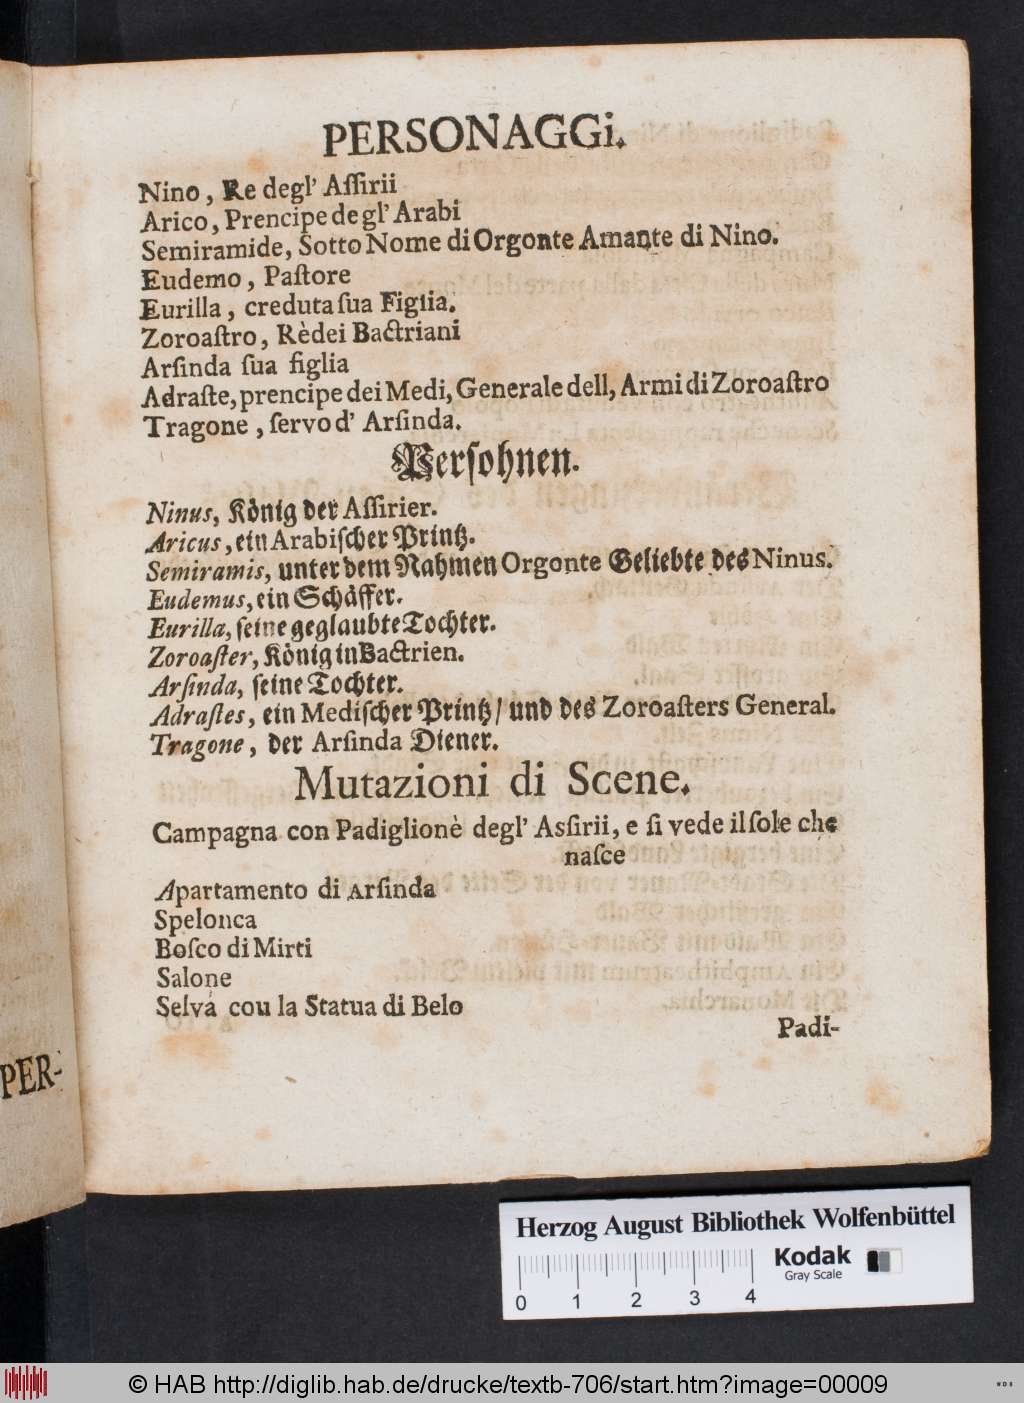 PERSONAGGi.
Nino, Re degl' Aſſirii
Arico, Prencipe de gl' Arabi
Semiramide, Sotto Nome di Orgonte Amante di Nino.
Eudemo, Paſtore
Eurilla, creduta ſua Figlia.
Zoroaſtro, Rè dei Bactriani
Arſinda ſua figlia
Adraſte, prencipe dei Medi, Generale dell, Armi di Zoroaſtro
Tragone, ſervo d' Arſinda.
Perſohnen.
Ninus, König der Aſſirier.
Aricus, ein Arabiſcher Printz.
Semiramis, unter dem Nahmen Orgonte Geliebte des Ninus.
Eudemus, ein Schäffer.
Eurilla, ſeine geglaubte Tochter.
Zoroaſter, König in Bactrien.
Arſinda, ſeine Tochter.
Adraſtes, ein Mediſcher Printz/ und des Zoroaſters General.
Tragone, der Arſinda Diener.
Mutazioni di Scene.
Campagna con Padiglionè degl' Asſirii, e ſi vede il ſole che
naſce
Apartamento di Arſinda
Spelonca
Boſco di Mirti
Salone
Selva cou la Statua di Belo
Padi-
PER-
Herzog August Bibliothek Wolfenbüttel
Kodak
Gray Scale
0 1 2 3 4
© HAB http://diglib.hab.de/drucke/textb-706/start.htm?image=00009